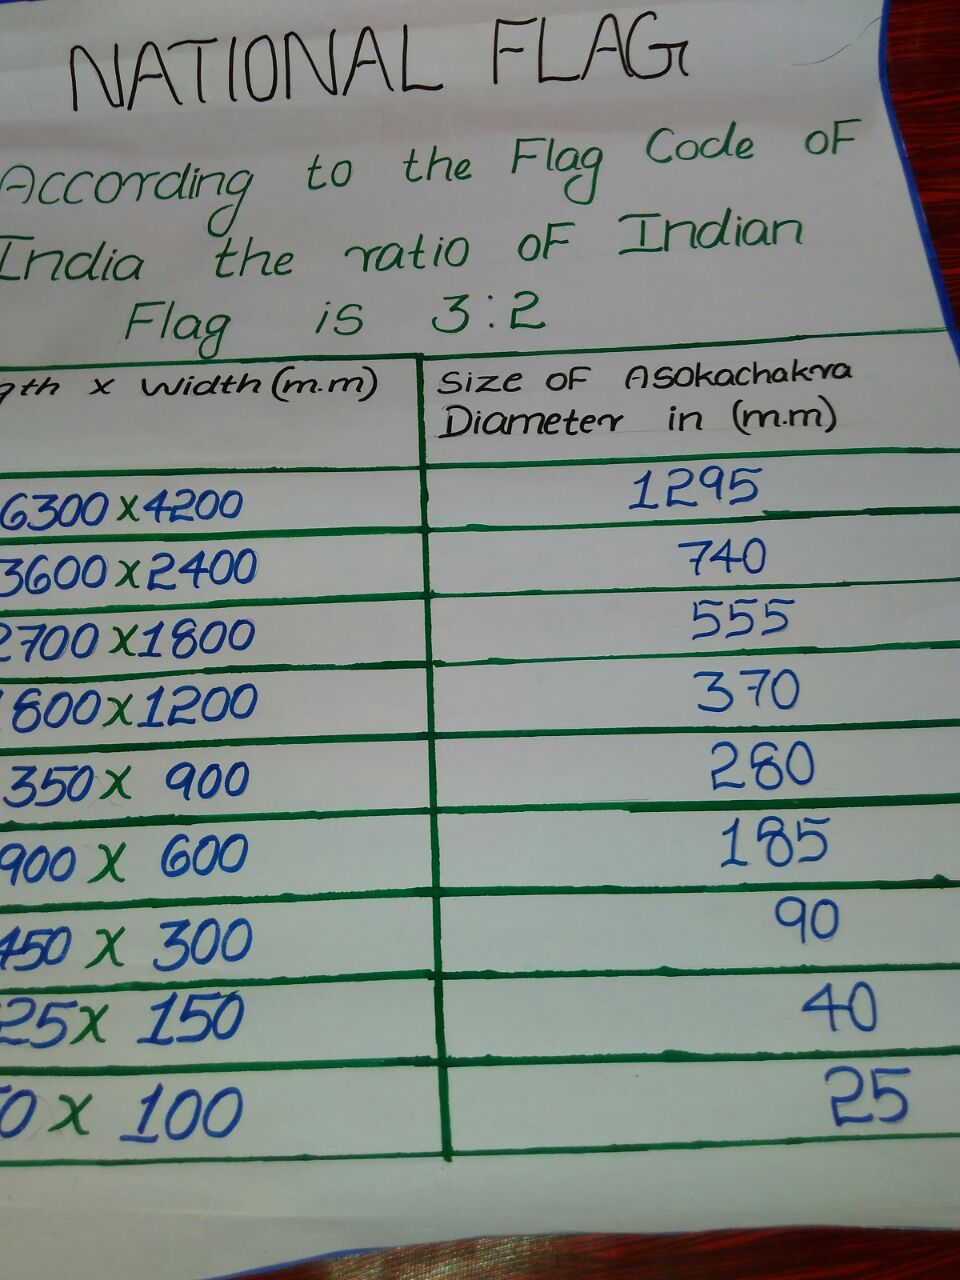 NATIONAL FLAG
According to the Flag Code of
India the ratio of Indian
Flag is 3:2
gth x Width (m.m) Size of Asokachakra
Diameter in (m.m)
6300 x 4200 1295
3600 x 2400 740
2700 x 1800 555
1800 x 1200 370
350 x 900 280
900 x 600 185
450 x 300 90
25 x 150 40
0 x 100 25